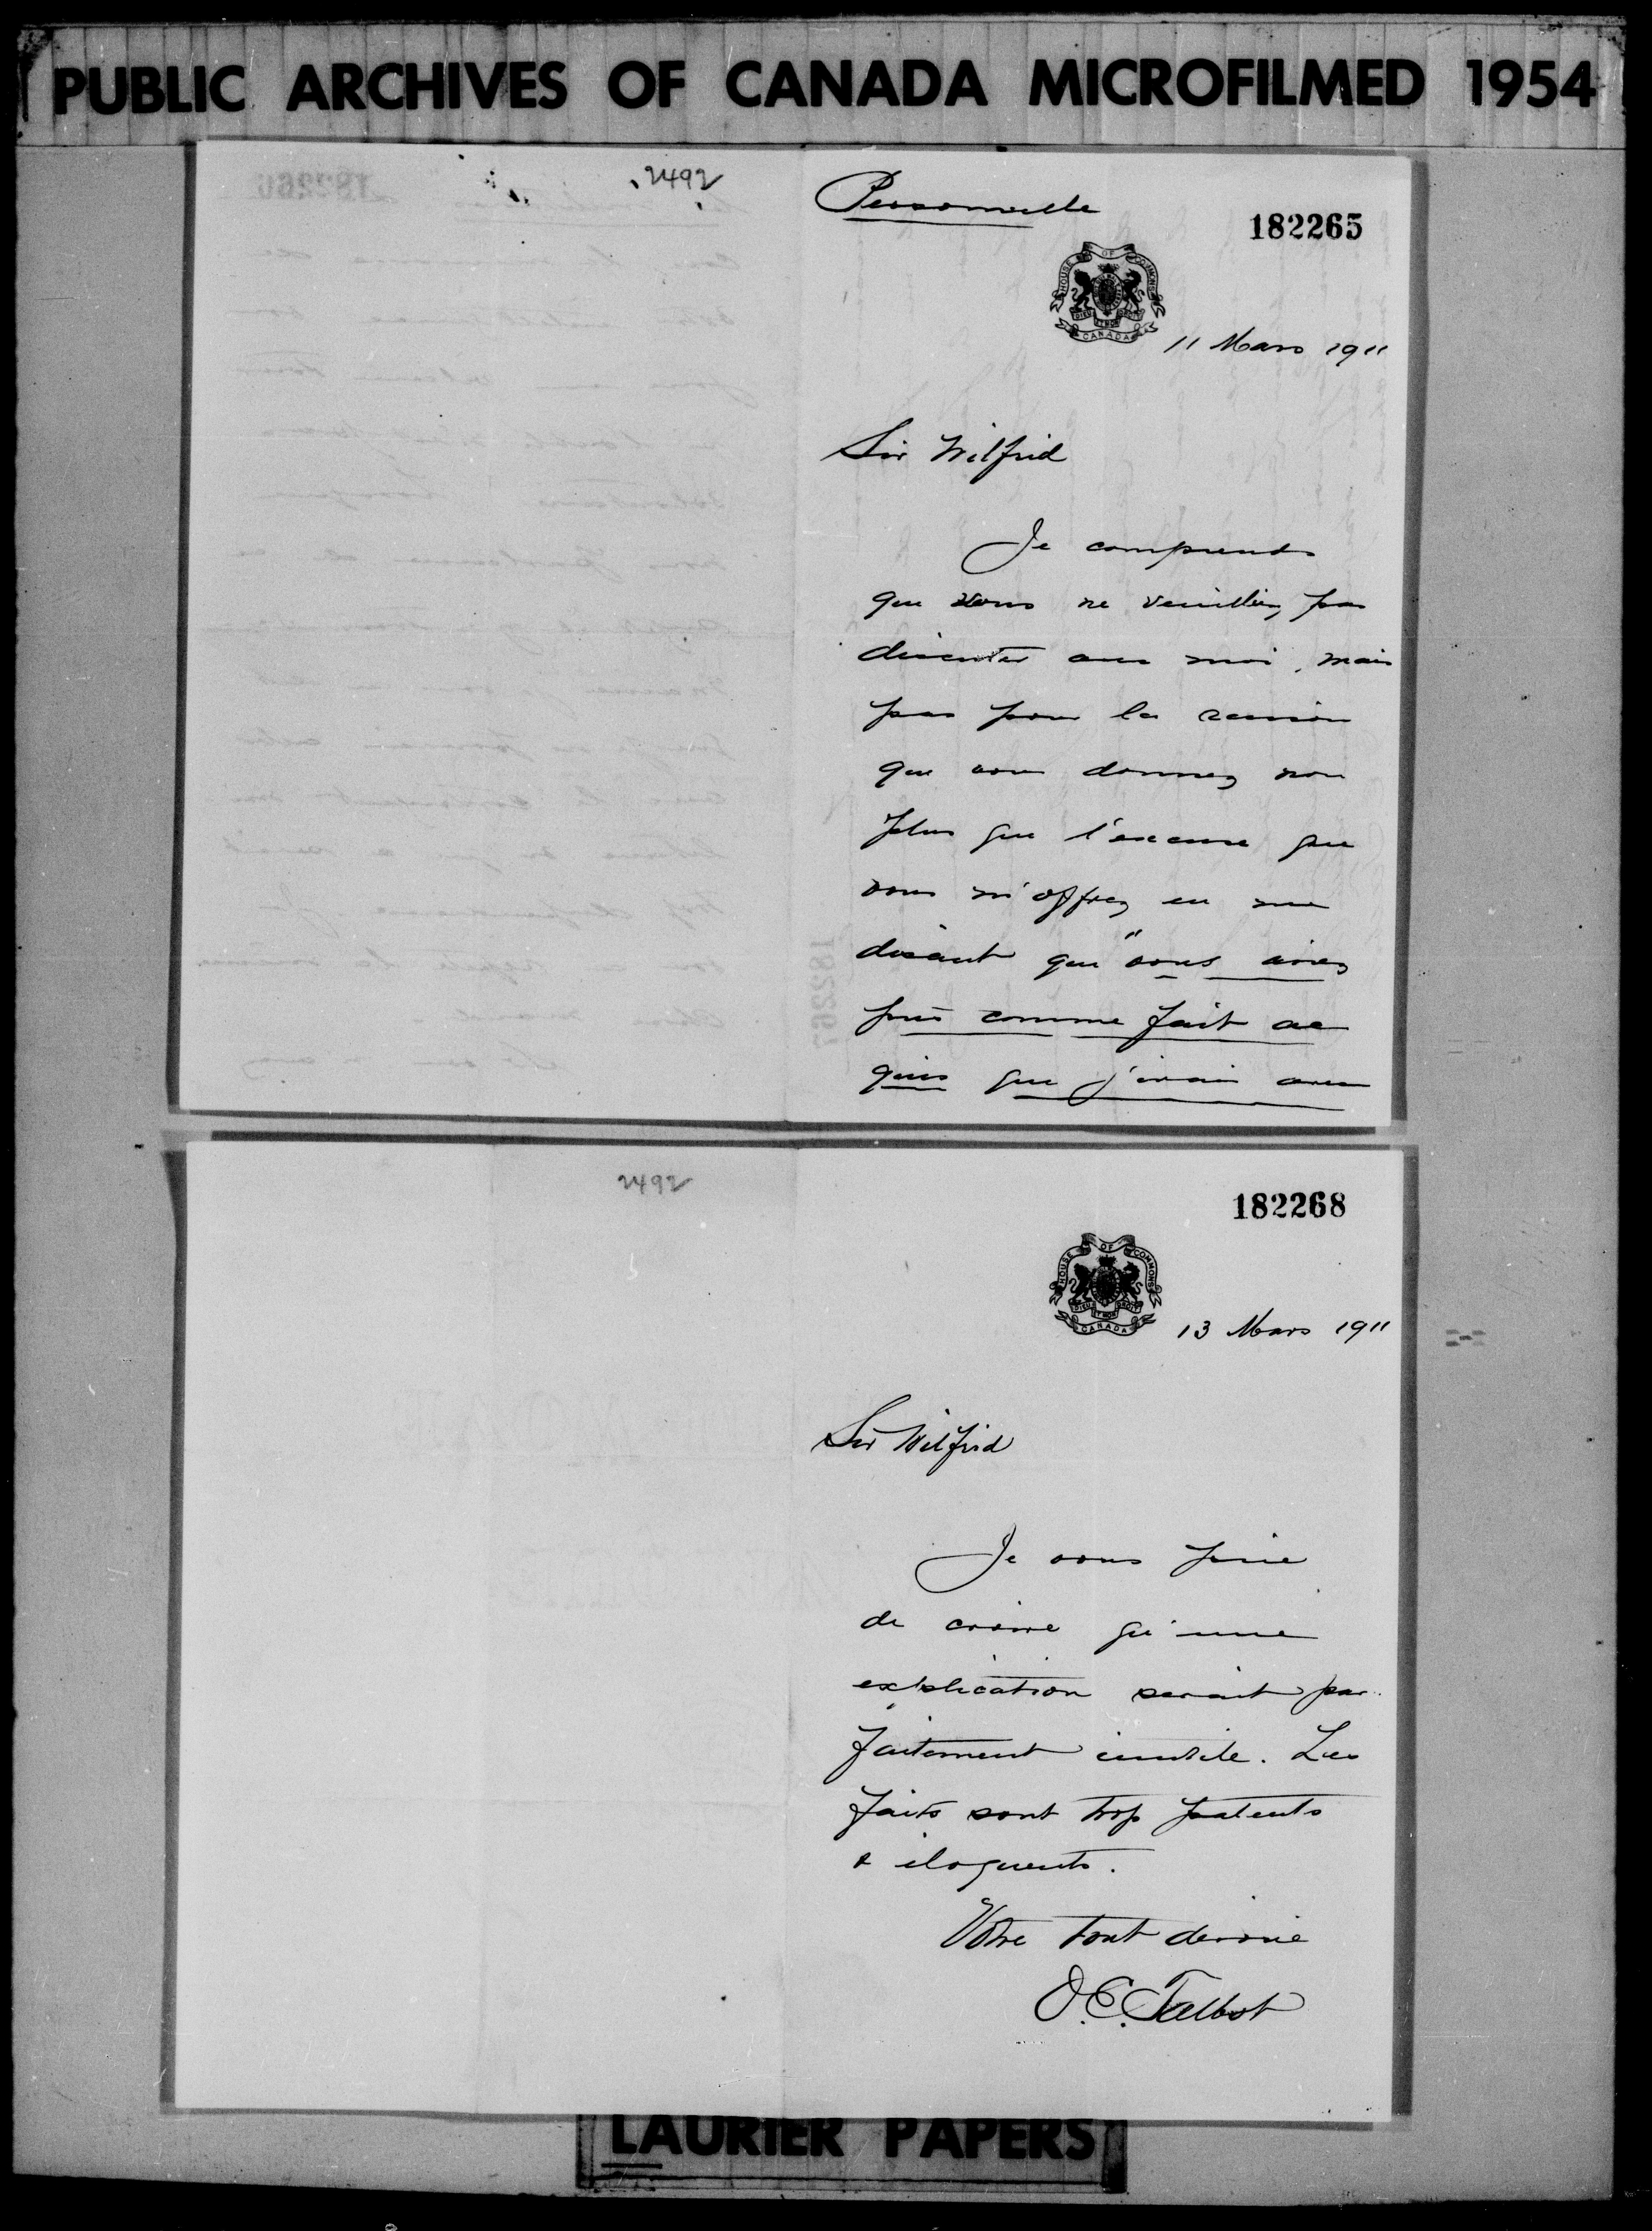 PUBLIC ARCHIVES OF CANADA MICROFILMED 1954
2492
Personnelle
182265
HOUSE OF COMMONS
DIEU ET MON DROIT
CANADA
11 Mars 1911
Sir Wilfrid
Je comprends
que vous ne veuillez pas
discuter avec moi, mais
pas pour la raison
que vous donnez non
plus que l'excuse que
vous m'offrez en me
disant que "vous aviez
pris comme fait ac
quis que j'irais avec
2492
182268
HOUSE OF COMMONS
DIEU ET MON DROIT
CANADA
13 Mars 1911
Sir Wilfrid
Je vous prie
de croire qu'une
explication serait par
faitement inutile. Les
faits sont trop patents
& éloquents.
Votre tout dévoué
O.E. Talbot
LAURIER PAPERS